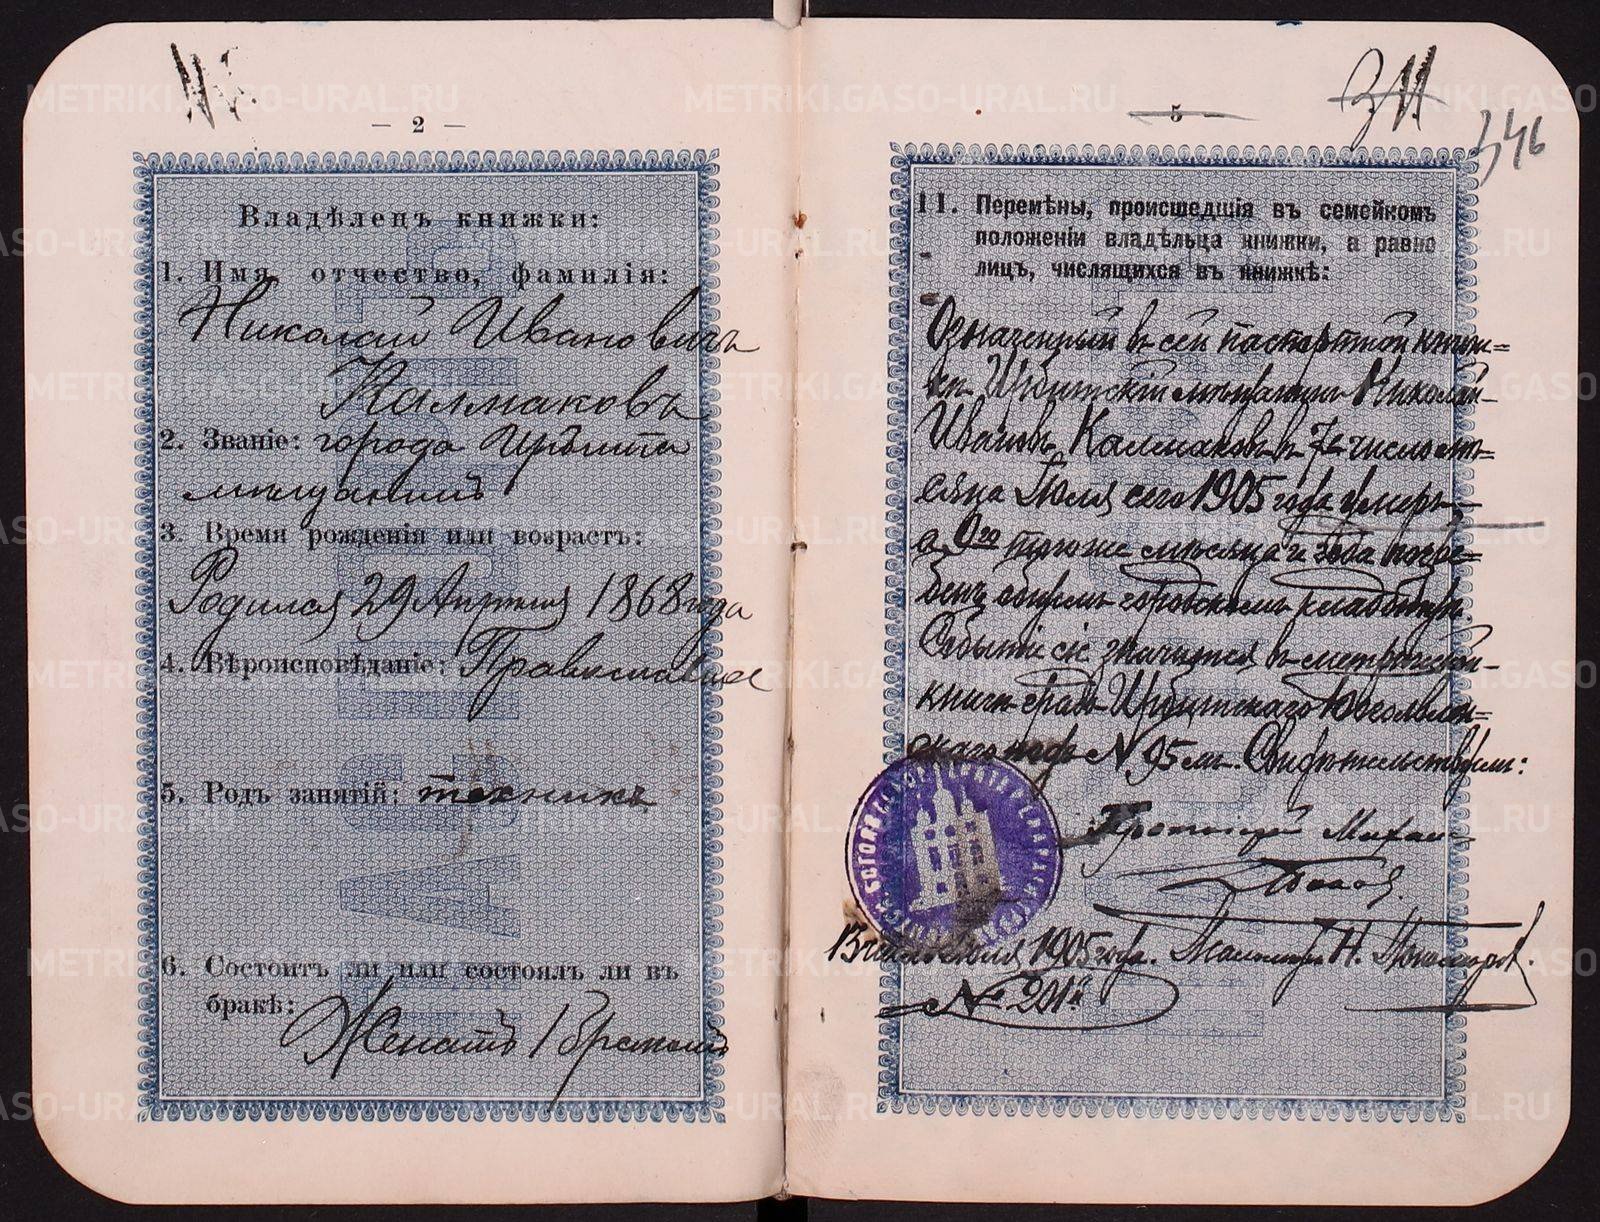 — 2 —
Владѣлецъ книжки:
1. Имя, отчество, фамилія:
Николай Ивановичъ
Калмаковъ
2. Званіе: города Ирбита
мѣщанинъ
3. Время рожденія или возрастъ:
Родился 29 Апрѣля 1868 года
4. Вѣроисповѣданіе: Православное
5. Родъ занятій: техникъ
6. Состоитъ ли или состоялъ ли въ
бракѣ:
Женатъ 1 бракомъ
5
346
11. Перемѣны, происшедшія въ семейномъ
положеніи владѣльца книжки, а равно
лицъ, числящихся въ книжкѣ:
Означенный въ сей паспортной книж=
кѣ Ирбитскій мѣщанинъ Николай
Ивановъ Калмаковъ въ 7е число мѣ=
сяца Іюля сего 1905 года умеръ
а того же мѣсяца и года погре=
бенъ городскомъ кладбищѣ.
Событіе сіе значится въ метрической
книгѣ Ирбитскаго Богоявлен=
скаго № 95 мъ. Свидѣтельствуемъ:
Протоіерей
Іюля 1905 года. Н.
№ 201й
METRIKI.GASO-URAL.RU